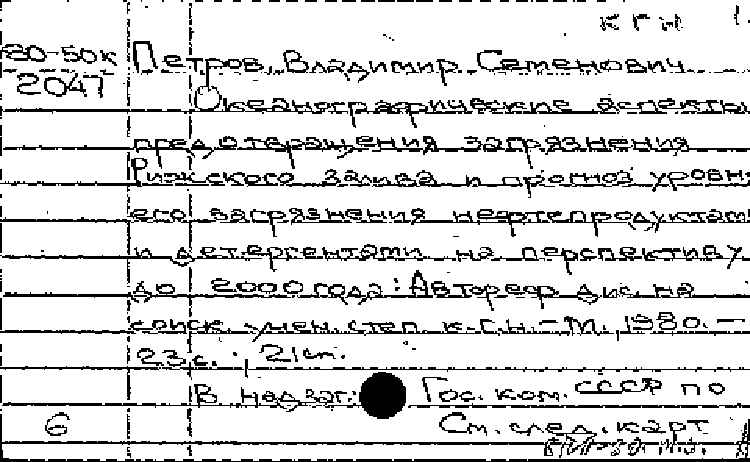 КГН 1.
80-50к Петров, Владимир Семенович
2047 Океанографические аспекты
предотвращения загрязнения
Рижского залива и прогноз уровня
его загрязнения нефтепродуктами
и детергентами на перспективу
до 2000 года: Автореф. дис. на
соиск. учен. степ. к.г.н. - М., 1980. -
23 с. ; 21 см.
В надзаг.: Гос. ком. СССР по
6 См. след. карт